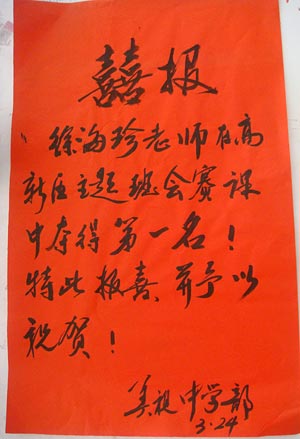 囍报
徐海珍老师在高
新区主题班会赛课
中夺得第一名！
特此报喜 并予以
祝贺！
美视中学部
3.24